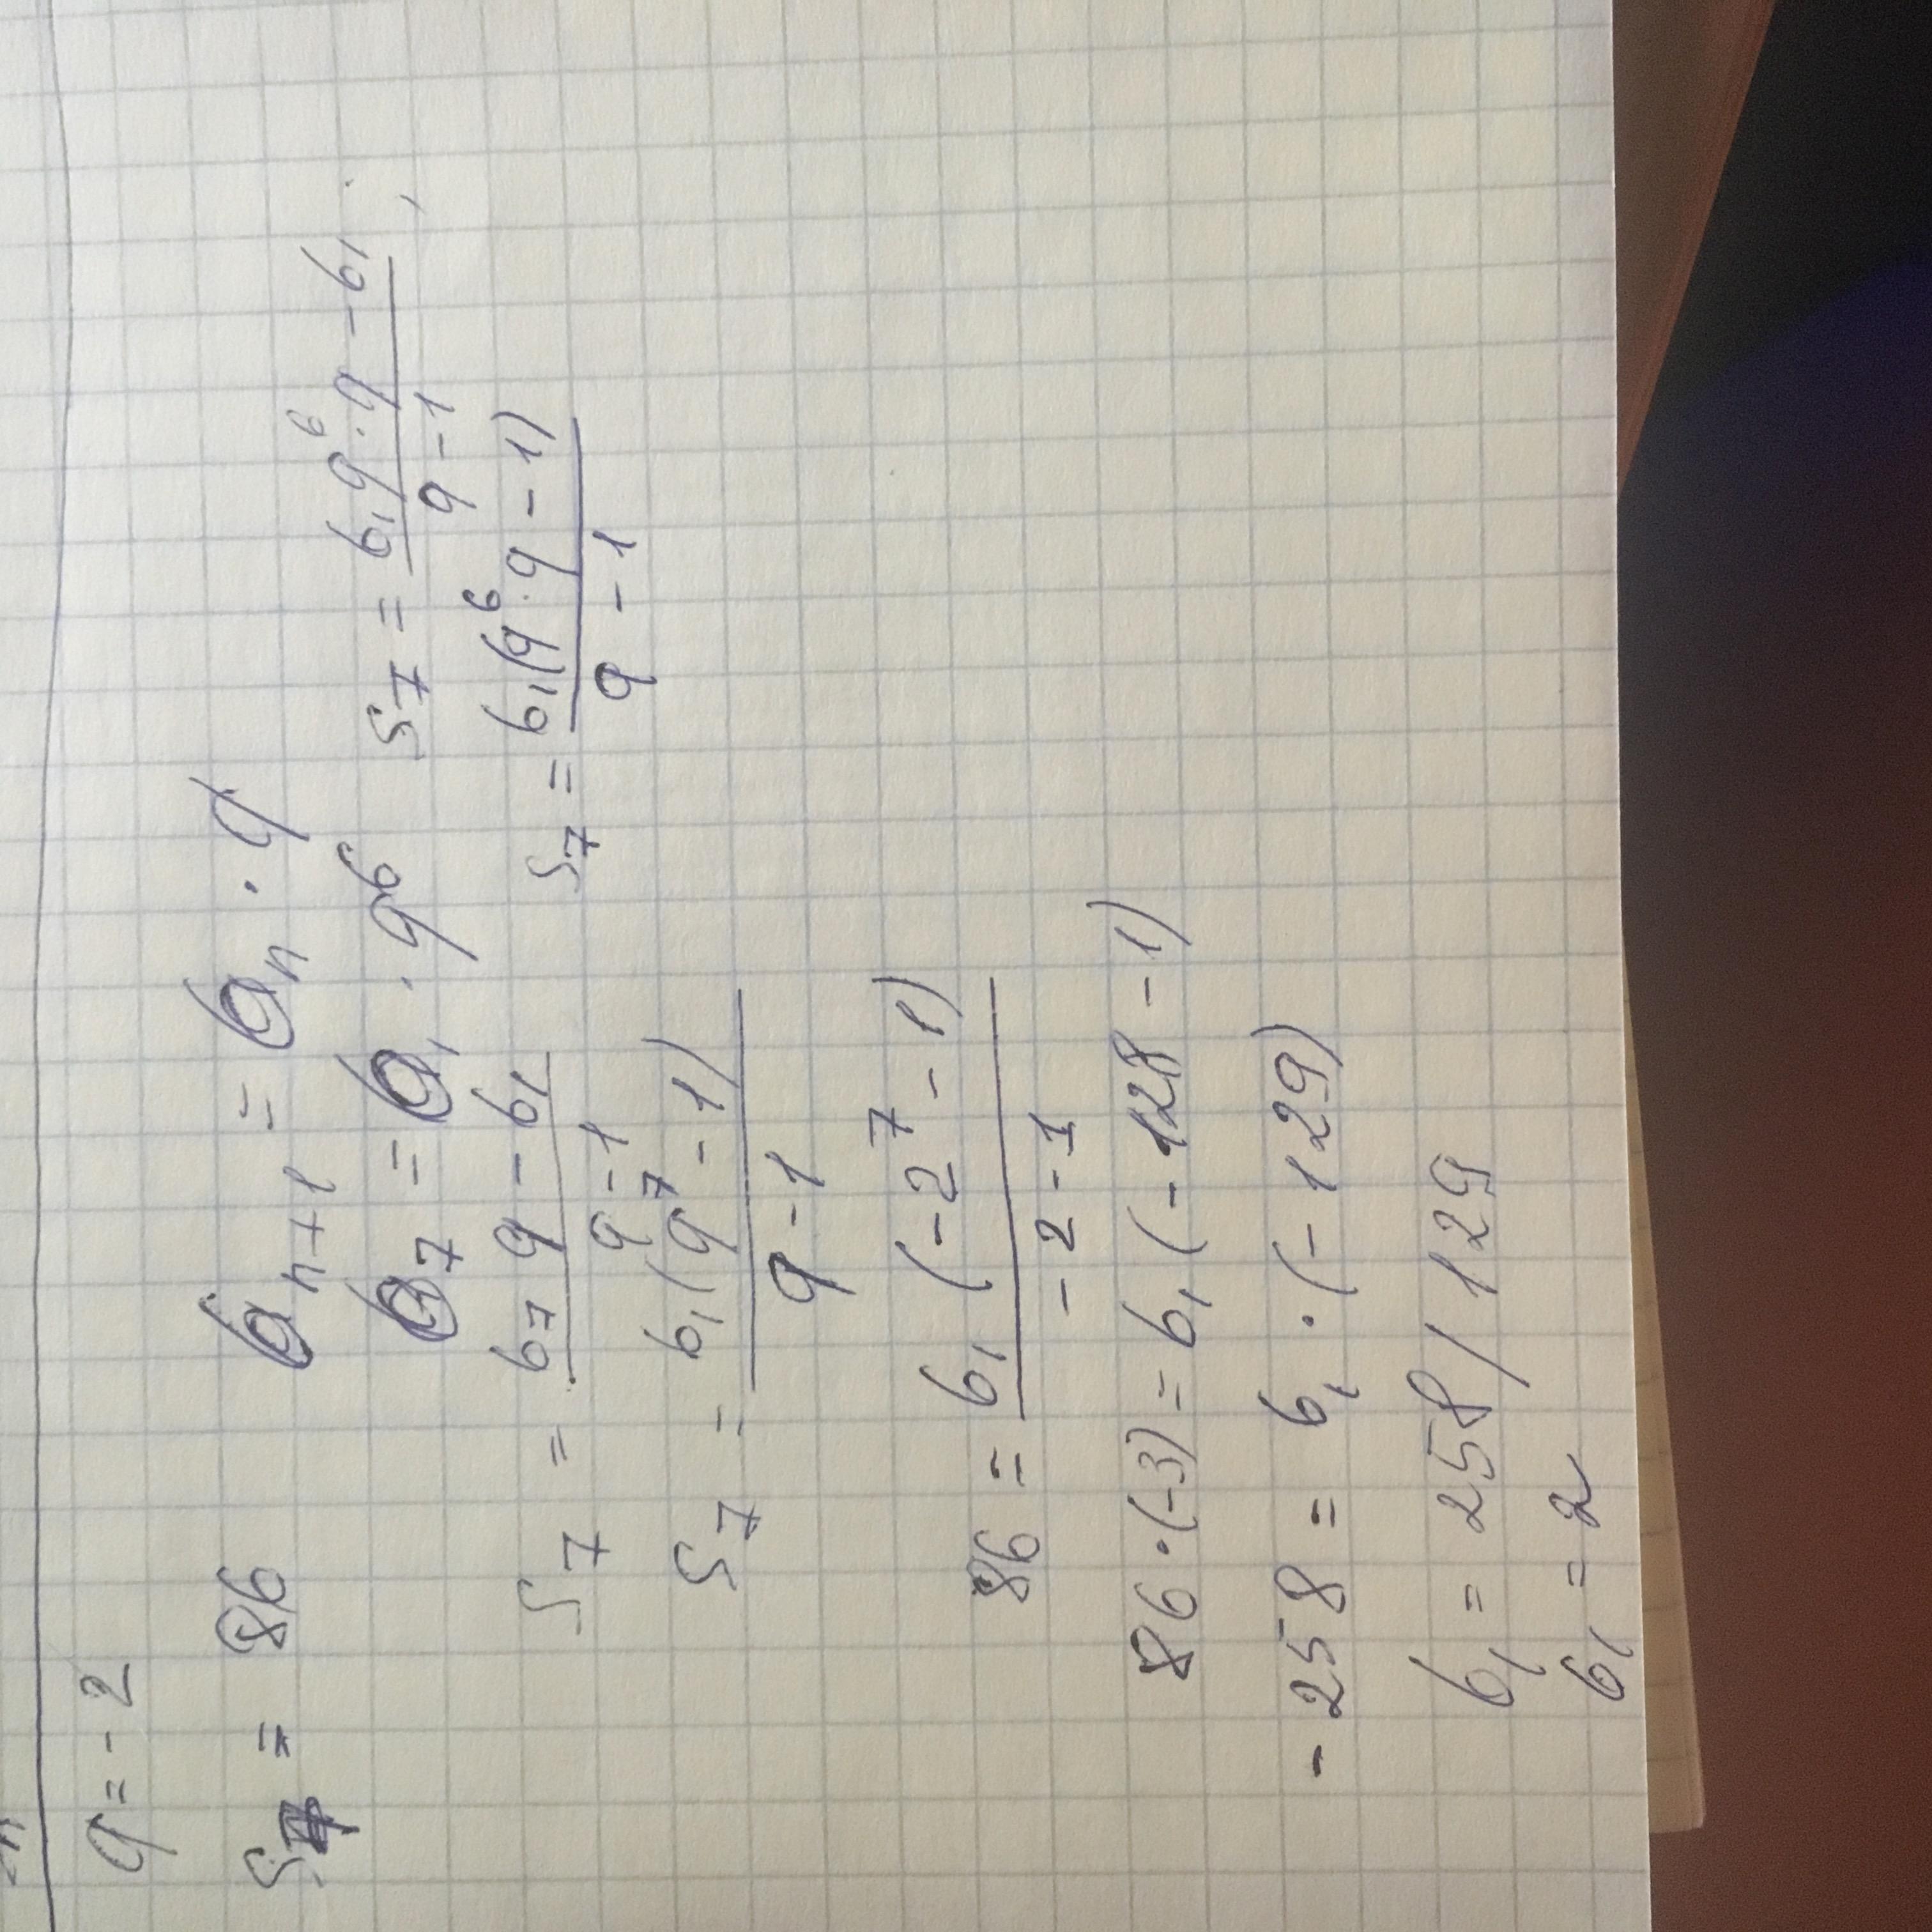 q = -2
S₇ = 86
b_{n+1} = b_n · q
b₇ = b₁ · q⁶
S₇ = (b₇ q - b₁) / (q - 1)
S₇ = (b₁ q⁶ · q - b₁) / (q - 1)
S₇ = (b₁(q⁷ - 1)) / (q - 1)
S₇ = (b₁(q⁶ · q - 1)) / (q - 1)
86 = (b₁ (-2⁷ - 1)) / (-2 - 1)
86 · (-3) = b₁ (-128 - 1)
-258 = b₁ · (-129)
b₁ = 258 / 129
b₁ = 2